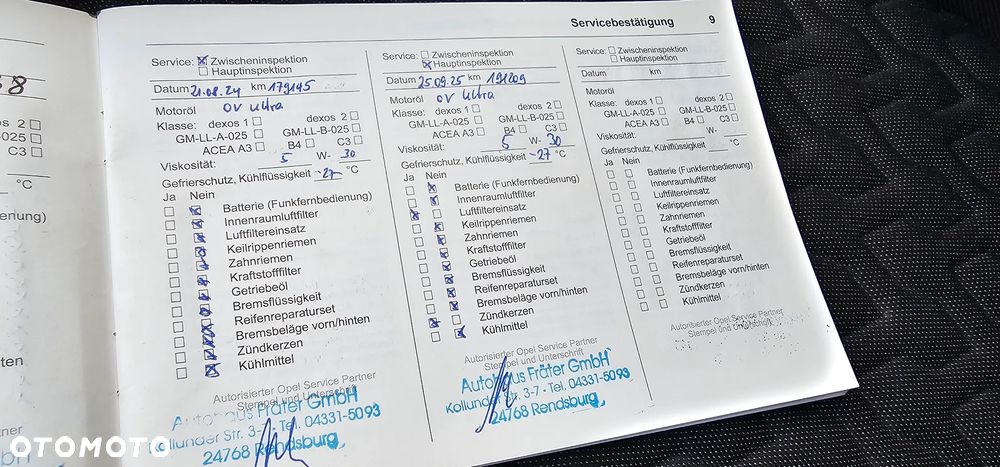 Servicebestätigung 9
Service: Zwischeninspektion
Hauptinspektion
Datum 21.08.24 km 179145
Motoröl OV Ultra
Klasse: dexos 1 dexos 2
GM-LL-A-025 GM-LL-B-025
ACEA A3 B4 C3
Viskosität: 5 W- 30
Gefrierschutz, Kühlflüssigkeit -27 °C
Ja Nein
Batterie (Funkfernbedienung)
Innenraumluftfilter
Luftfiltereinsatz
Keilrippenriemen
Zahnriemen
Kraftstofffilter
Getriebeöl
Bremsflüssigkeit
Reifenreparaturset
Bremsbeläge vorn/hinten
Zündkerzen
Kühlmittel
Autorisierter Opel Service Partner
Stempel und Unterschrift
Autohaus Fräter GmbH
Kollunder Str. 3-7 • Tel. 04331-5093
24768 Rendsburg
Service: Zwischeninspektion
Hauptinspektion
Datum 25.09.25 km 191209
Motoröl OV Ultra
Klasse: dexos 1 dexos 2
GM-LL-A-025 GM-LL-B-025
ACEA A3 B4 C3
Viskosität: 5 W- 30
Gefrierschutz, Kühlflüssigkeit -27 °C
Ja Nein
Batterie (Funkfernbedienung)
Innenraumluftfilter
Luftfiltereinsatz
Keilrippenriemen
Zahnriemen
Kraftstofffilter
Getriebeöl
Bremsflüssigkeit
Reifenreparaturset
Bremsbeläge vorn/hinten
Zündkerzen
Kühlmittel
Autorisierter Opel Service Partner
Stempel und Unterschrift
Autohaus Fräter GmbH
Kollunder Str. 3-7 • Tel. 04331-5093
24768 Rendsburg
Service: Zwischeninspektion
Hauptinspektion
Datum km
Motoröl
Klasse: dexos 1 dexos 2
GM-LL-A-025 GM-LL-B-025
ACEA A3 B4 C3
Viskosität: W-
Gefrierschutz, Kühlflüssigkeit °C
Ja Nein
Batterie (Funkfernbedienung)
Innenraumluftfilter
Luftfiltereinsatz
Keilrippenriemen
Zahnriemen
Kraftstofffilter
Getriebeöl
Bremsflüssigkeit
Reifenreparaturset
Bremsbeläge vorn/hinten
Zündkerzen
Kühlmittel
Autorisierter Opel Service Partner
Stempel und Unterschrift
OTOMOTO